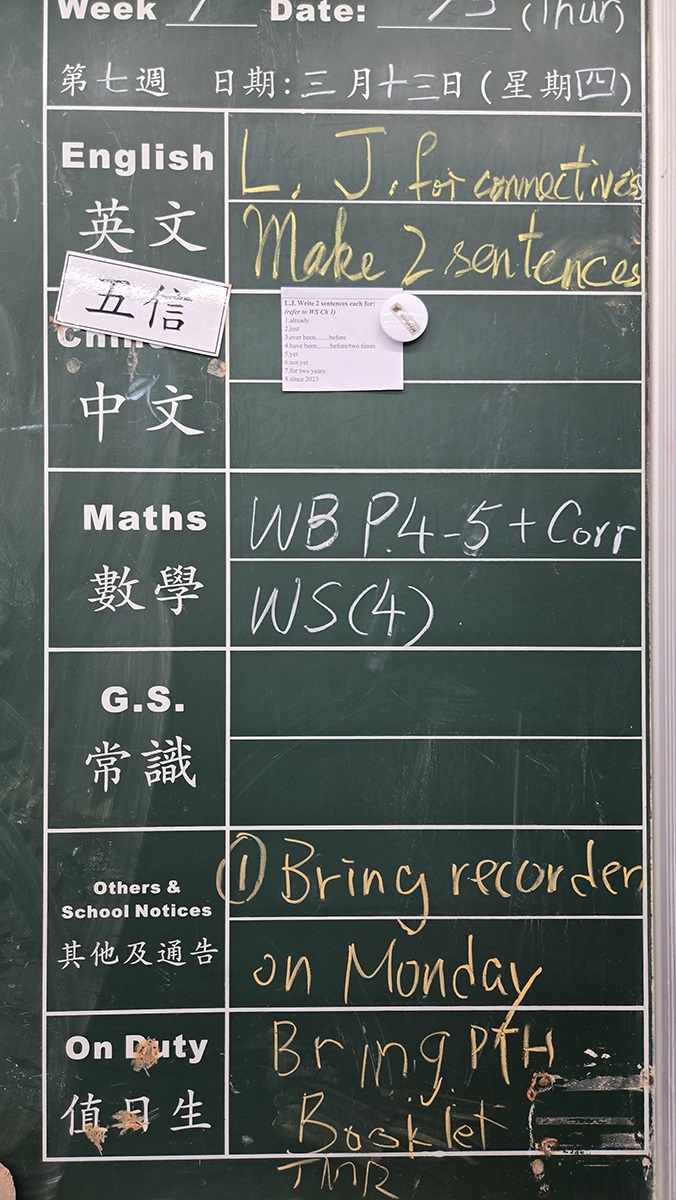 Week 7 Date: 13 (Thur)
第七週 日期:三月十三日(星期四)
English
英文
L. J. for connectives
Make 2 sentences
五信
中文
L.J. Write 2 sentences each for:
(refer to WS Ch 1)
1.already
2.just
3.ever been.......before
4.have been.......before/two times
5.yet
6.not yet
7.for two years
8.since 2023
Maths
數學
WB P.4-5 + Corr
WS(4)
G.S.
常識
Others &
School Notices
其他及通告
① Bring recorder
on Monday
On Duty
值日生
Bring PTH
Booklet
TMR